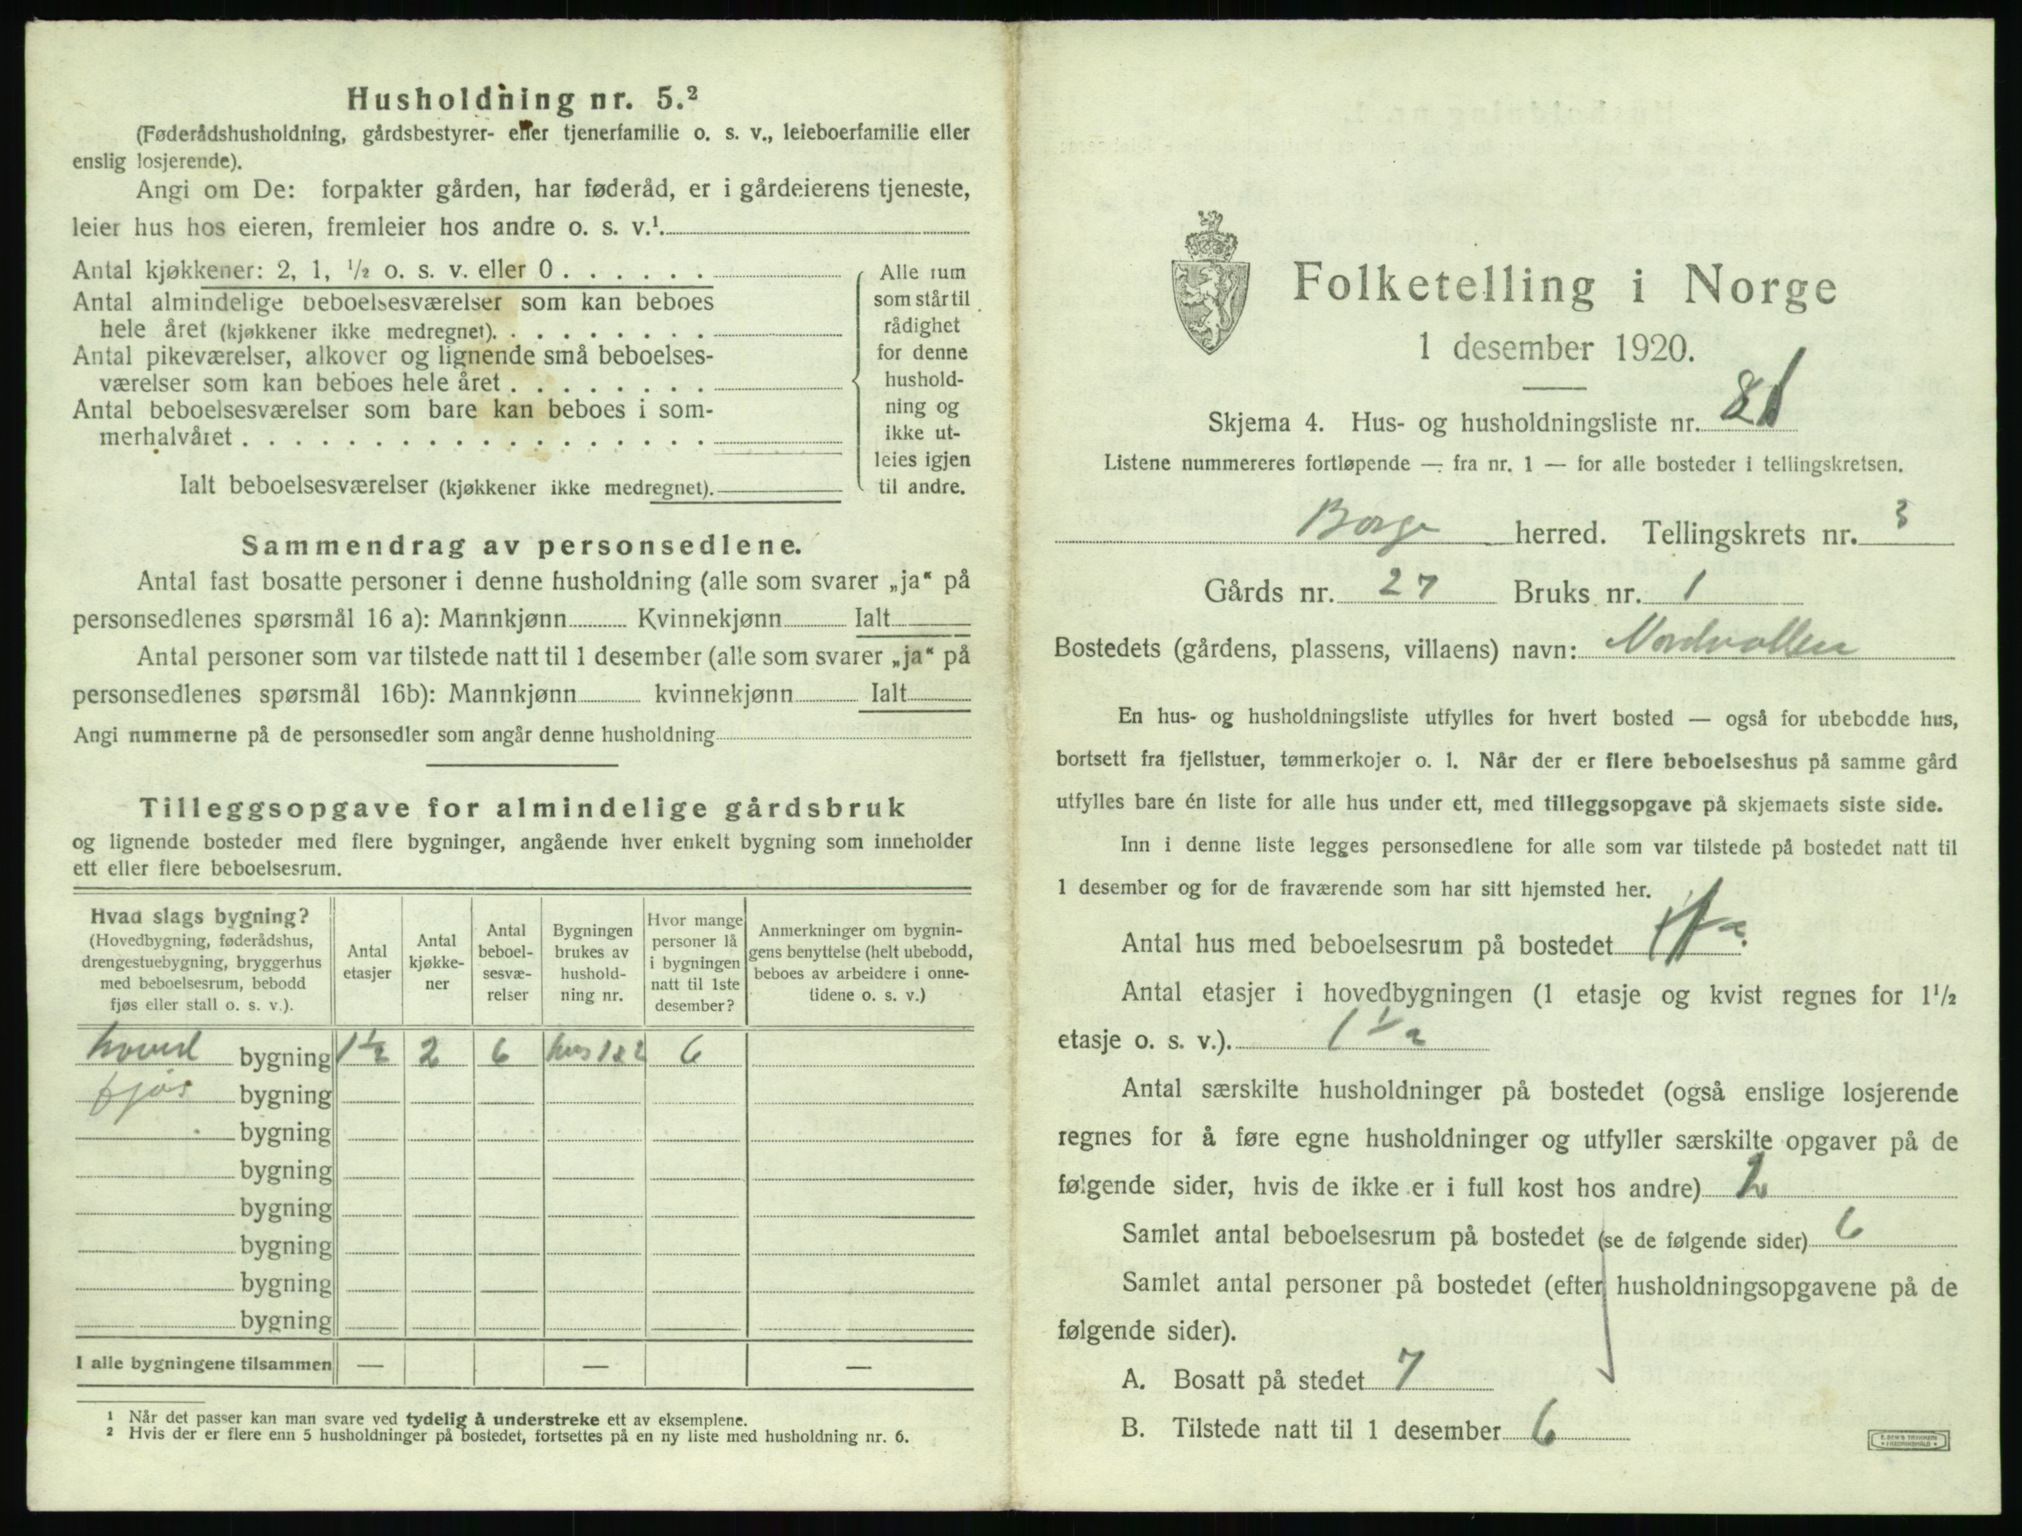 Husholdning nr. 5.²
(Føderådshusholdning, gårdsbestyrer- eller tjenerfamilie o. s. v., leieboerfamilie eller
enslig losjerende).
Angi om De: forpakter gården, har føderåd, er i gårdeierens tjeneste,
leier hus hos eieren, fremleier hos andre o. s. v.¹
Antal kjøkkener: 2, 1, ½ o. s. v. eller 0 . . . . . .
Antal almindelige beboelsesværelser som kan beboes
hele året (kjøkkener ikke medregnet). . . . . . . . .
Antal pikeværelser, alkover og lignende små beboelses-
værelser som kan beboes hele året . . . . . . . .
Antal beboelsesværelser som bare kan beboes i som-
merhalvåret . . . . . . . . . . . . . . . . . .
Ialt beboelsesværelser (kjøkkener ikke medregnet).
Alle rum
som står til
rådighet
for denne
hushold-
ning og
ikke ut-
leies igjen
til andre.
Sammendrag av personsedlene.
Antal fast bosatte personer i denne husholdning (alle som svarer „ja“ på
personsedlenes spørsmål 16 a): Mannkjønn Kvinnekjønn Ialt
Antal personer som var tilstede natt til 1 desember (alle som svarer „ja“ på
personsedlenes spørsmål 16b): Mannkjønn kvinnekjønn Ialt
Angi nummerne på de personsedler som angår denne husholdning
Tilleggsopgave for almindelige gårdsbruk
og lignende bosteder med flere bygninger, angående hver enkelt bygning som inneholder
ett eller flere beboelsesrum.
Hvad slags bygning?
(Hovedbygning, føderådshus,
drengestuebygning, bryggerhus
med beboelsesrum, bebodd
fjøs eller stall o. s. v.).
Antal
etasjer
Antal
kjøkke-
ner
Antal
beboel-
sesvæ-
relser
Bygningen
brukes av
hushold-
ning nr.
Hvor mange
personer lå
i bygningen
natt til 1ste
desember?
Anmerkninger om bygnin-
gens benyttelse (helt ubebodd,
beboes av arbeidere i onne-
tidene o. s. v.)
hoved bygning 1½ 2 6 hus 1 & 2 6
fjøs bygning
bygning
bygning
bygning
bygning
bygning
bygning
I alle bygningene tilsammen — — —
¹ Når det passer kan man svare ved tydelig å understreke ett av eksemplene.
² Hvis der er flere enn 5 husholdninger på bostedet, fortsettes på en ny liste med husholdning nr. 6.
Folketelling i Norge
1 desember 1920.
Skjema 4. Hus- og husholdningsliste nr. 81
Listene nummereres fortløpende — fra nr. 1 — for alle bosteder i tellingskretsen.
Borge herred. Tellingskrets nr. 3
Gårds nr. 27 Bruks nr. 1
Bostedets (gårdens, plassens, villaens) navn: Nordvollen
En hus- og husholdningsliste utfylles for hvert bosted — også for ubebodde hus,
bortsett fra fjellstuer, tømmerkojer o. l. Når der er flere beboelseshus på samme gård
utfylles bare én liste for alle hus under ett, med tilleggsopgave på skjemaets siste side.
Inn i denne liste legges personsedlene for alle som var tilstede på bostedet natt til
1 desember og for de fraværende som har sitt hjemsted her.
Antal hus med beboelsesrum på bostedet
Antal etasjer i hovedbygningen (1 etasje og kvist regnes for 1½
etasje o. s. v.). 1½
Antal særskilte husholdninger på bostedet (også enslige losjerende
regnes for å føre egne husholdninger og utfyller særskilte opgaver på de
følgende sider, hvis de ikke er i full kost hos andre) 2
Samlet antal beboelsesrum på bostedet (se de følgende sider) 6
Samlet antal personer på bostedet (efter husholdningsopgavene på de
følgende sider).
A. Bosatt på stedet 7
B. Tilstede natt til 1 desember 6